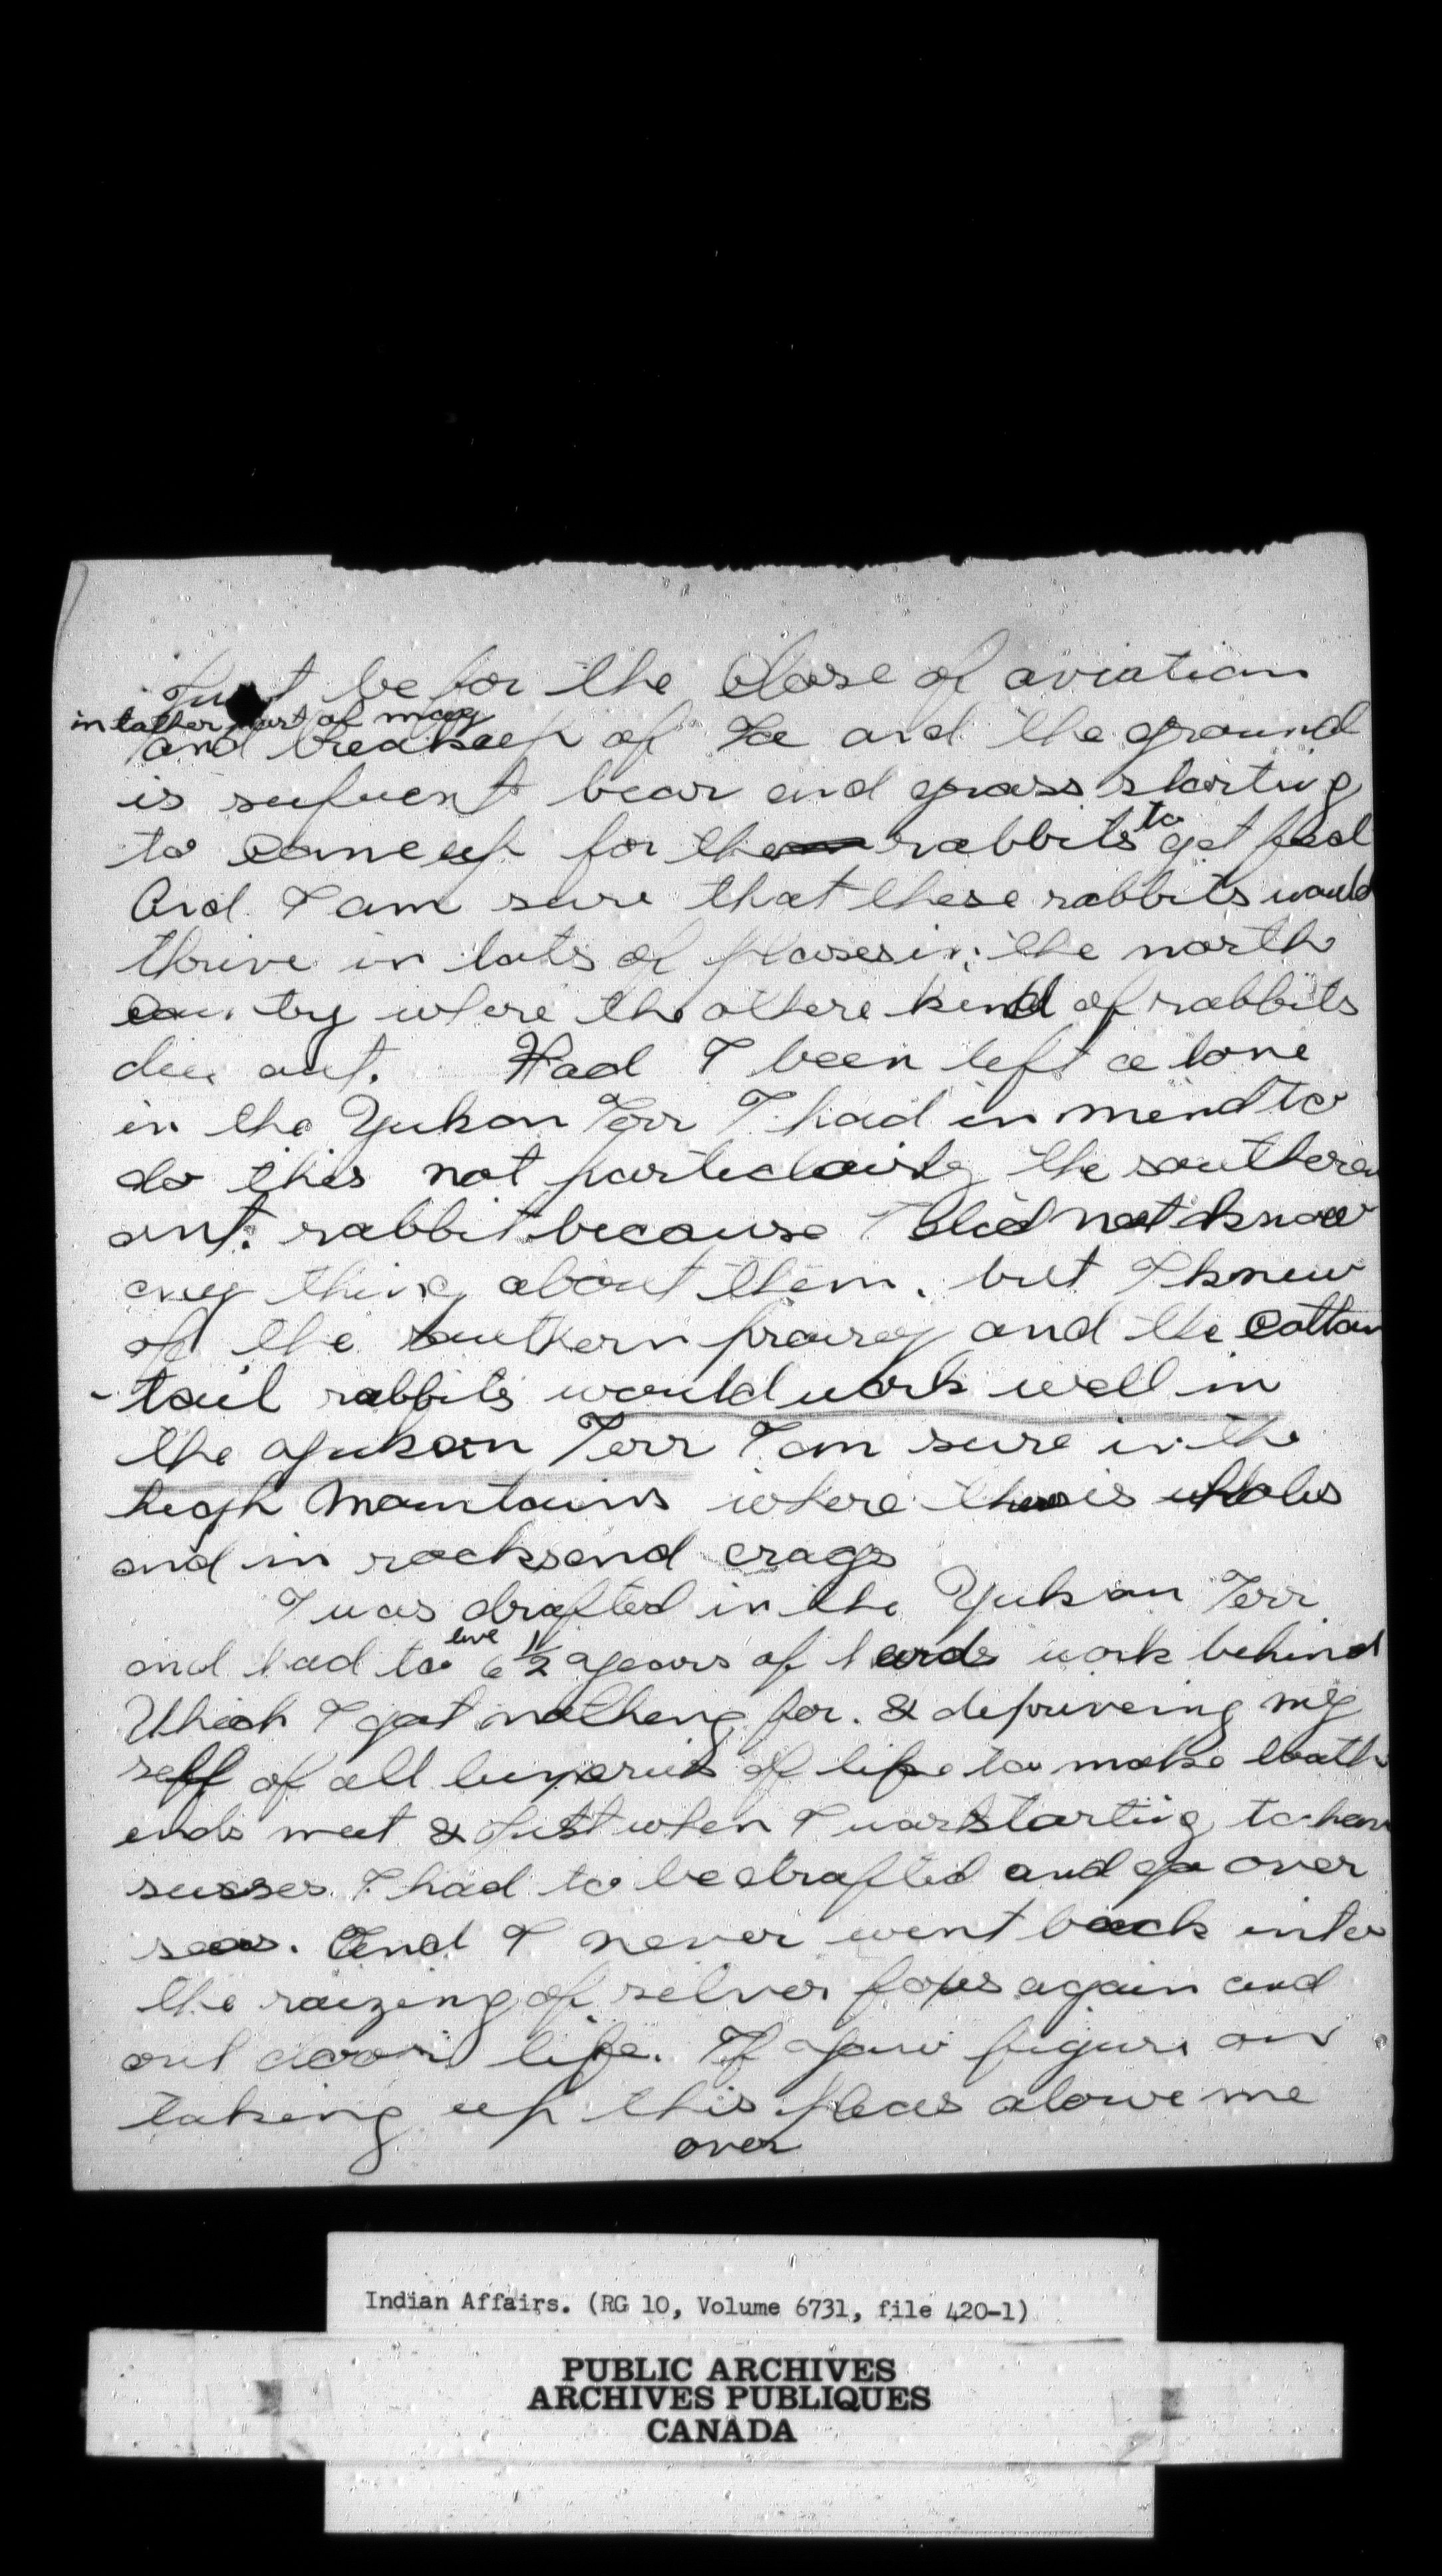 Just be for the Close of aviation
in latter part of may
and breakeup of Ice and the ground
is sufuent bear and grass starting
to come up for the rabbits to get feed
And I am sure that these rabbits would
thrive in lots of plases in the north
country where the othere kind of rabbits
die out. Had I been left a lone
in the Yukon Terr I had in mend to
do this not particularly the southeren
ont. rabbit because I did not know
any thing about them. but I knew
of the southern prairey and the Cotton
-tail rabbits would work well in
the yukon Terr I am sure in the
high Mountains where is holes
and in rocks and crags
I was drafted in the Yukon Terr
and had to leve 6 1/2 years of hard work behind
Which I got nothing for. & depriveing my
self of all luxuries of life to make both
ends meet & just when I was starting to have
susses I had to be drafted and go over
seas. And I never went back into
the raizing of selver foxes again and
out door life. If you figure on
taking up this alowe me
over
Indian Affairs. (RG 10, Volume 6731, file 420-1)
PUBLIC ARCHIVES
ARCHIVES PUBLIQUES
CANADA